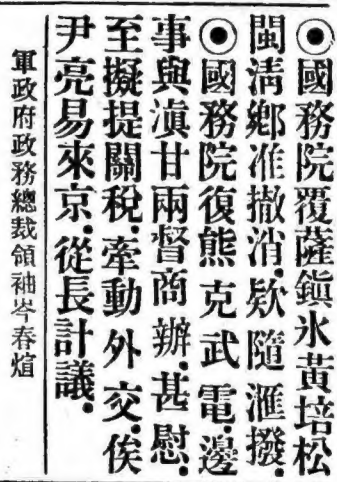 ◉國務院覆薩鎭氷黃培松
閩淸鄉准撤消.欵隨滙撥.
◉國務院復熊克武電.邊
事與滇甘兩督商辦.甚慰.
至擬提關稅.牽動外交.俟
尹亮易來京.從長計議.
軍政府政務總裁領袖岑春煊